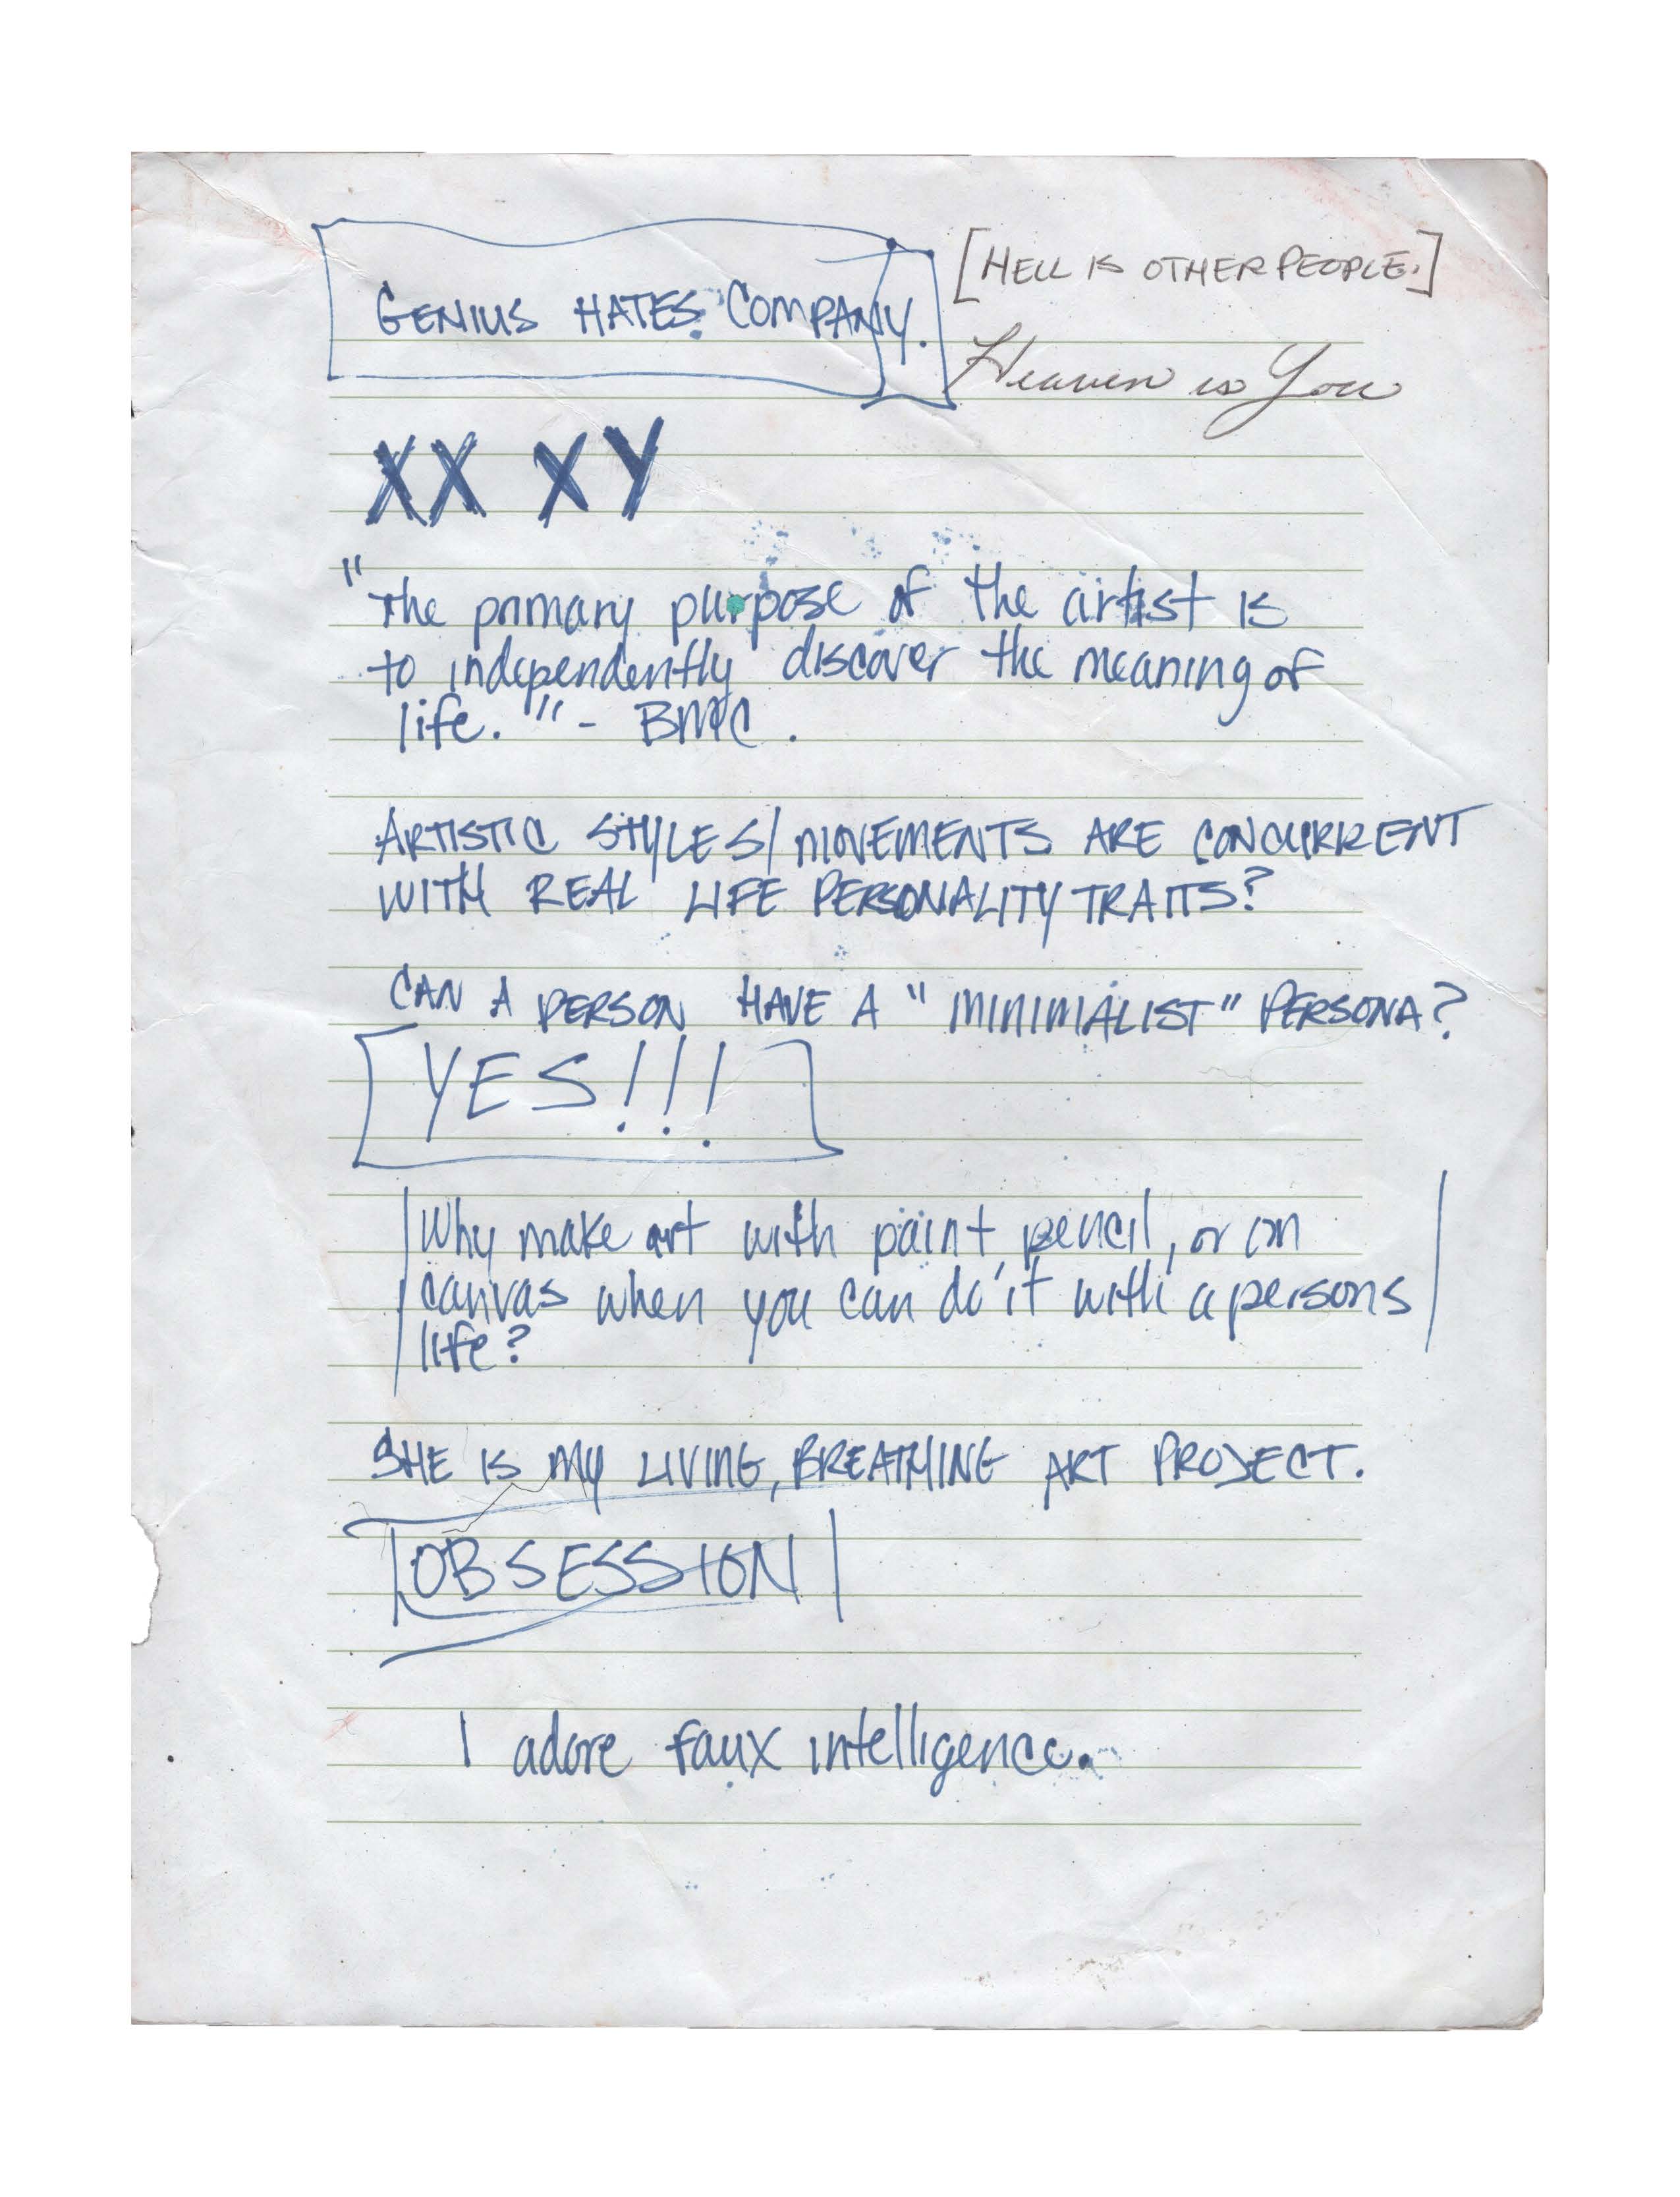 GENIUS HATES COMPANY.
[HELL IS OTHER PEOPLE.]
Heaven is You
XX XY
"The primary purpose of the artist is
to independently discover the meaning of
life." - BMC.
ARTISTIC STYLES/MOVEMENTS ARE CONCURRENT
WITH REAL LIFE PERSONALITY TRAITS?
CAN A PERSON HAVE A "MINIMALIST" PERSONA?
YES!!!
Why make art with paint, pencil, or on
canvas when you can do it with a persons
life?
SHE IS MY LIVING, BREATHING ART PROJECT.
OBSESSION
I adore faux intelligence.